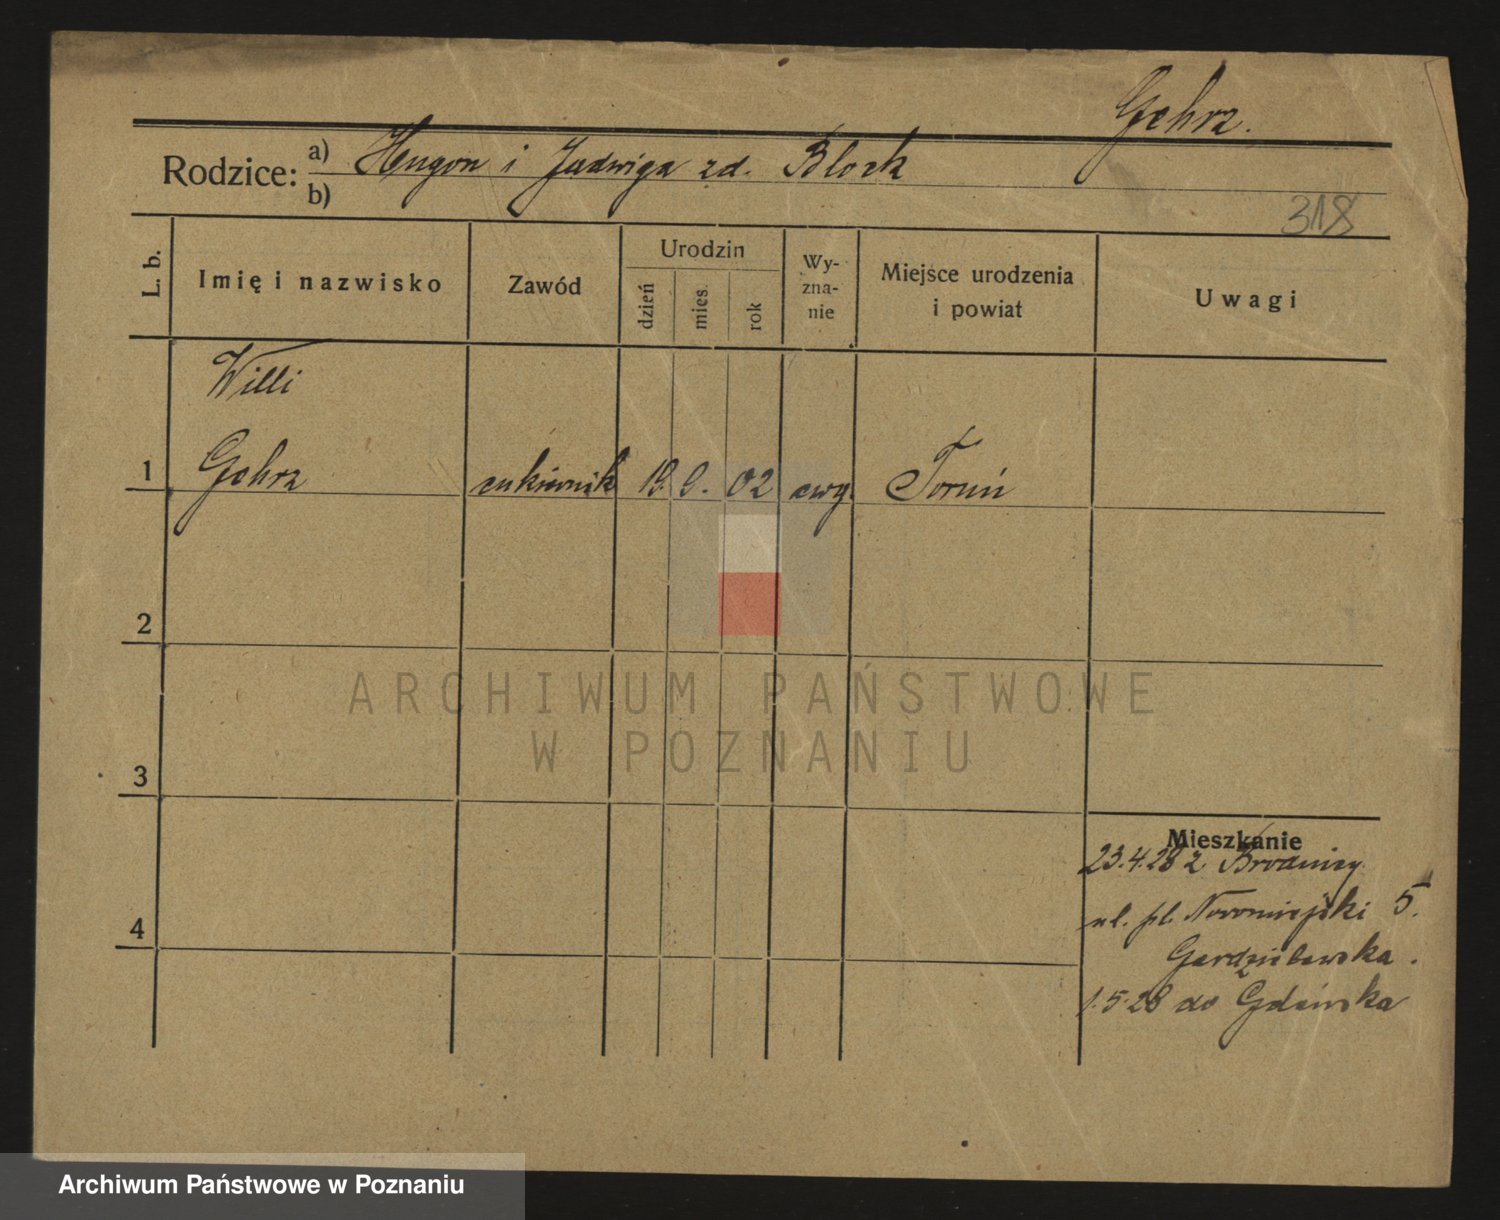 Gehrz.
Rodzice: a) Hugon i Jadwiga zd. Block
b)
318
L. b.
Imię i nazwisko
Zawód
Urodzin
dzień
mies.
rok
Wy-
zna-
nie
Miejsce urodzenia
i powiat
Uwagi
Willi
1 Gehrz cukiernik 19. 9. 02 ewg. Toruń
2
3
4
Mieszkanie
23.4.28 z Brodnicy
ul. pl. Nowomiejski 5.
1.5.28 do Gdańska
ARCHIWUM PAŃSTWOWE
W POZNANIU
Archiwum Państwowe w Poznaniu